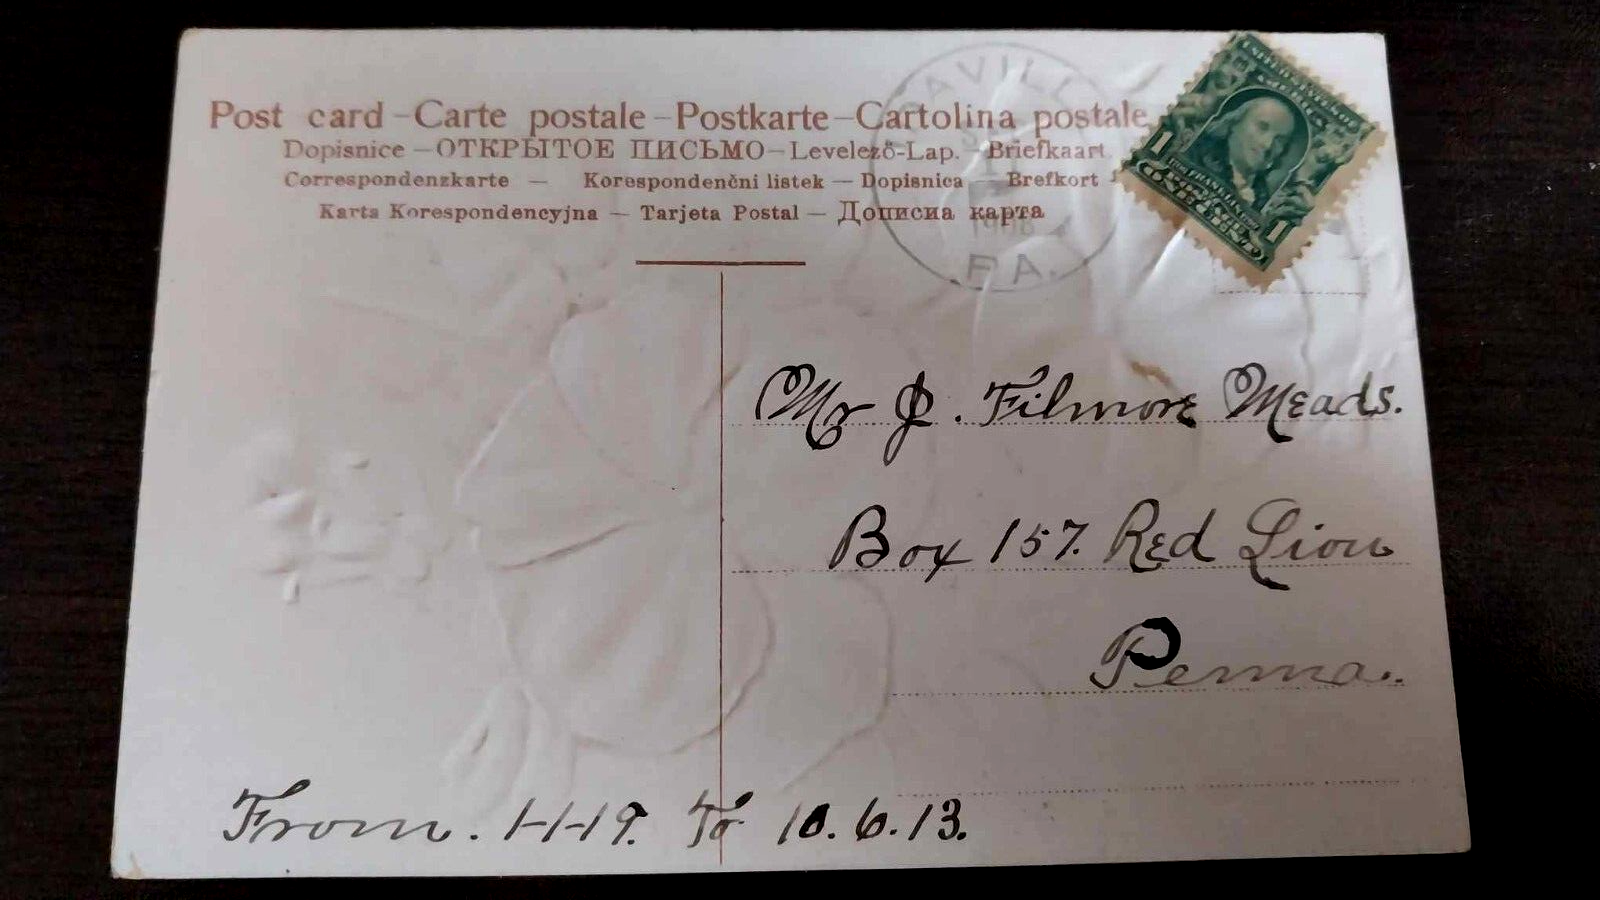 Post card – Carte postale – Postkarte – Cartolina postale
Dopisnice – ОТКРЫТОЕ ПИСЬМО – Levelező-Lap. Briefkaart
Correspondenzkarte – Korespondenční listek – Dopisnica Brefkort
Karta Korespondencyjna – Tarjeta Postal – Дописна карта
1908
PA.
1 1
Mr J. Filmore Meads.
Box 157. Red Lion
Penna.
From. 1-1-19. To 10.6.13.